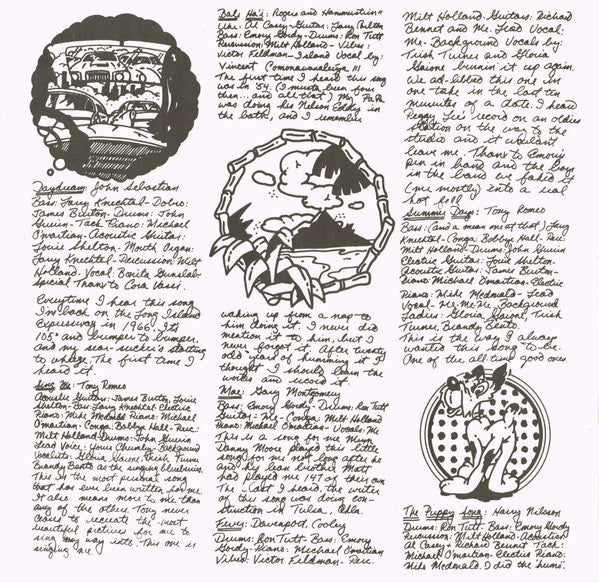 Daydream: John Sebastian
Bass: Larry Knechtel - Dobro:
James Burton - Drums: John
Guerin - Tack Piano: Michael
Omartian - Acoustic Guitar:
Louie Shelton - Mouth Organ:
Larry Knechtel - Percussion: Milt
Holland - Vocal:
Special Thanx to Cora Vassi.
Everytime I hear this song
I'm back on the Long Island
Expressway in 1966. It's
105° and bumper to bumper.
And my sear-sucker's starting
to. The first time I
heard it.
Sing Me: Tony Romeo
Acoustic Guitars: James Burton, Louie
Shelton - Bass: Larry Knechtel - Electric
Piano: Mike McDonald - Piano: Michael
Omartian - Conga: Bobbye Hall - Perc:
Milt Holland - Drums: John Guerin
Lead Voice: Yours Chumley - Background
Vocalists: Gloria, Trish Turner
Brandy Bento as the singing bluebirds.
This is the most personal song
that has ever been written for me.
It also means more to me than
any of the others. Tony never
ceases to recreate the most
beautiful pictures for me to
sing my way into. This one is
singing me.
Bali Ha'i: Rogers and Hammerstein
Uke: Al Casey - Guitar: Larry Carlton
Bass: Emory Gordy - Drums: Ron Tutt
Percussion: Milt Holland - Vibes:
Victor Feldman - Island Vocal by:
Vincent
The first time I heard this song
was in '54 (I musta been four
then... and all that) My Pa Pa
was doing his Nelson Eddy in
the bath, and I remember
waking up from a nap to
him doing it. I never did
mention it to him, but I
never forgot it. After twenty
odd years of humming it I
thought I should learn the
words and record it.
Mae: Gary Montgomery
Bass: Emory Gordy - Drums: Ron Tutt
Guitars: Me - Conga: Milt Holland
Piano: Michael Omartian - Vocals: Me
This is a song for me Mum
Danny Moore played this little
song for me not long after he
and his lean brother Matt
had played me 147 of their own
The last I heard, the writer
of this song was doing con-
struction in Tulsa, Okla.
Fever: Davenport, Cooley
Drums: Ron Tutt - Bass: Emory
Gordy - Piano: Michael Omartian
Vibes: Victor Feldman - Perc:
Milt Holland - Guitars: Richard
Bennet and Me. Lead Vocal:
Me - Background Vocals by:
Trish Turner and Gloria
burnin' it up again.
We ad-libbed this one in
one take in the last ten
minutes of a date. I heard
Peggy Lee's record on an oldies
station on the way to the
studio and it wouldn't
leave me. Thanx to Emory's
pen in hand and the boys
in the band we faked it
(me mostly) into a real
hot
Summer Days: Tony Romeo
Bass: (and a mean one at that) Larry
Knechtel - Conga: Bobbye Hall - Perc:
Milt Holland - Drums: John Guerin
Electric Guitar: Louie Shelton -
Acoustic Guitar: James Burton -
Piano: Michael Omartian - Electric
Piano: Mike McDonald - Lead
Vocal - Me - Me - Me, Background
Ladies: Gloria, Trish
Turner, Brandy Bento.
This is the way I always
wanted this song to be.
One of the all-time good ones
The Puppy Song: Harry Nilsson
Drums: Ron Tutt - Bass: Emory Gordy
Percussion: Milt Holland - Acoustics:
Al Casey + Richard Bennet Tack:
Michael Omartian - Electric Piano:
Mike McDonald. I did the hums.